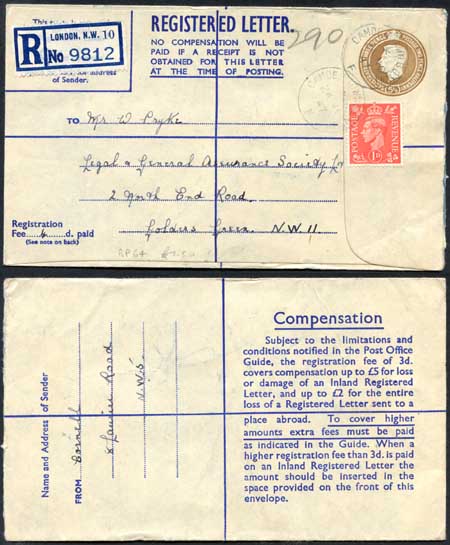 REGISTERED LETTER.
NO COMPENSATION WILL BE
PAID IF A RECEIPT IS NOT
OBTAINED FOR THIS LETTER
AT THE TIME OF POSTING.
R
LONDON, N.W. 10
No 9812
of Sender.
290
POSTAGE
REVENUE
1D
TO Mr W Pryke
Legal & General Assurance Society
2 North End Road
Golders Green. N.W.11
Registration
Fee 4 d. paid
(See note on back)
RP64
Name and Address of Sender
FROM
Road
N.W.5.
Compensation
Subject to the limitations and
conditions notified in the Post Office
Guide, the registration fee of 3d.
covers compensation up to £5 for loss
or damage of an Inland Registered
Letter, and up to £2 for the entire
loss of a Registered Letter sent to a
place abroad. To cover higher
amounts extra fees must be paid
as indicated in the Guide. When a
higher registration fee than 3d. is paid
on an Inland Registered Letter the
amount should be inserted in the
space provided on the front of this
envelope.